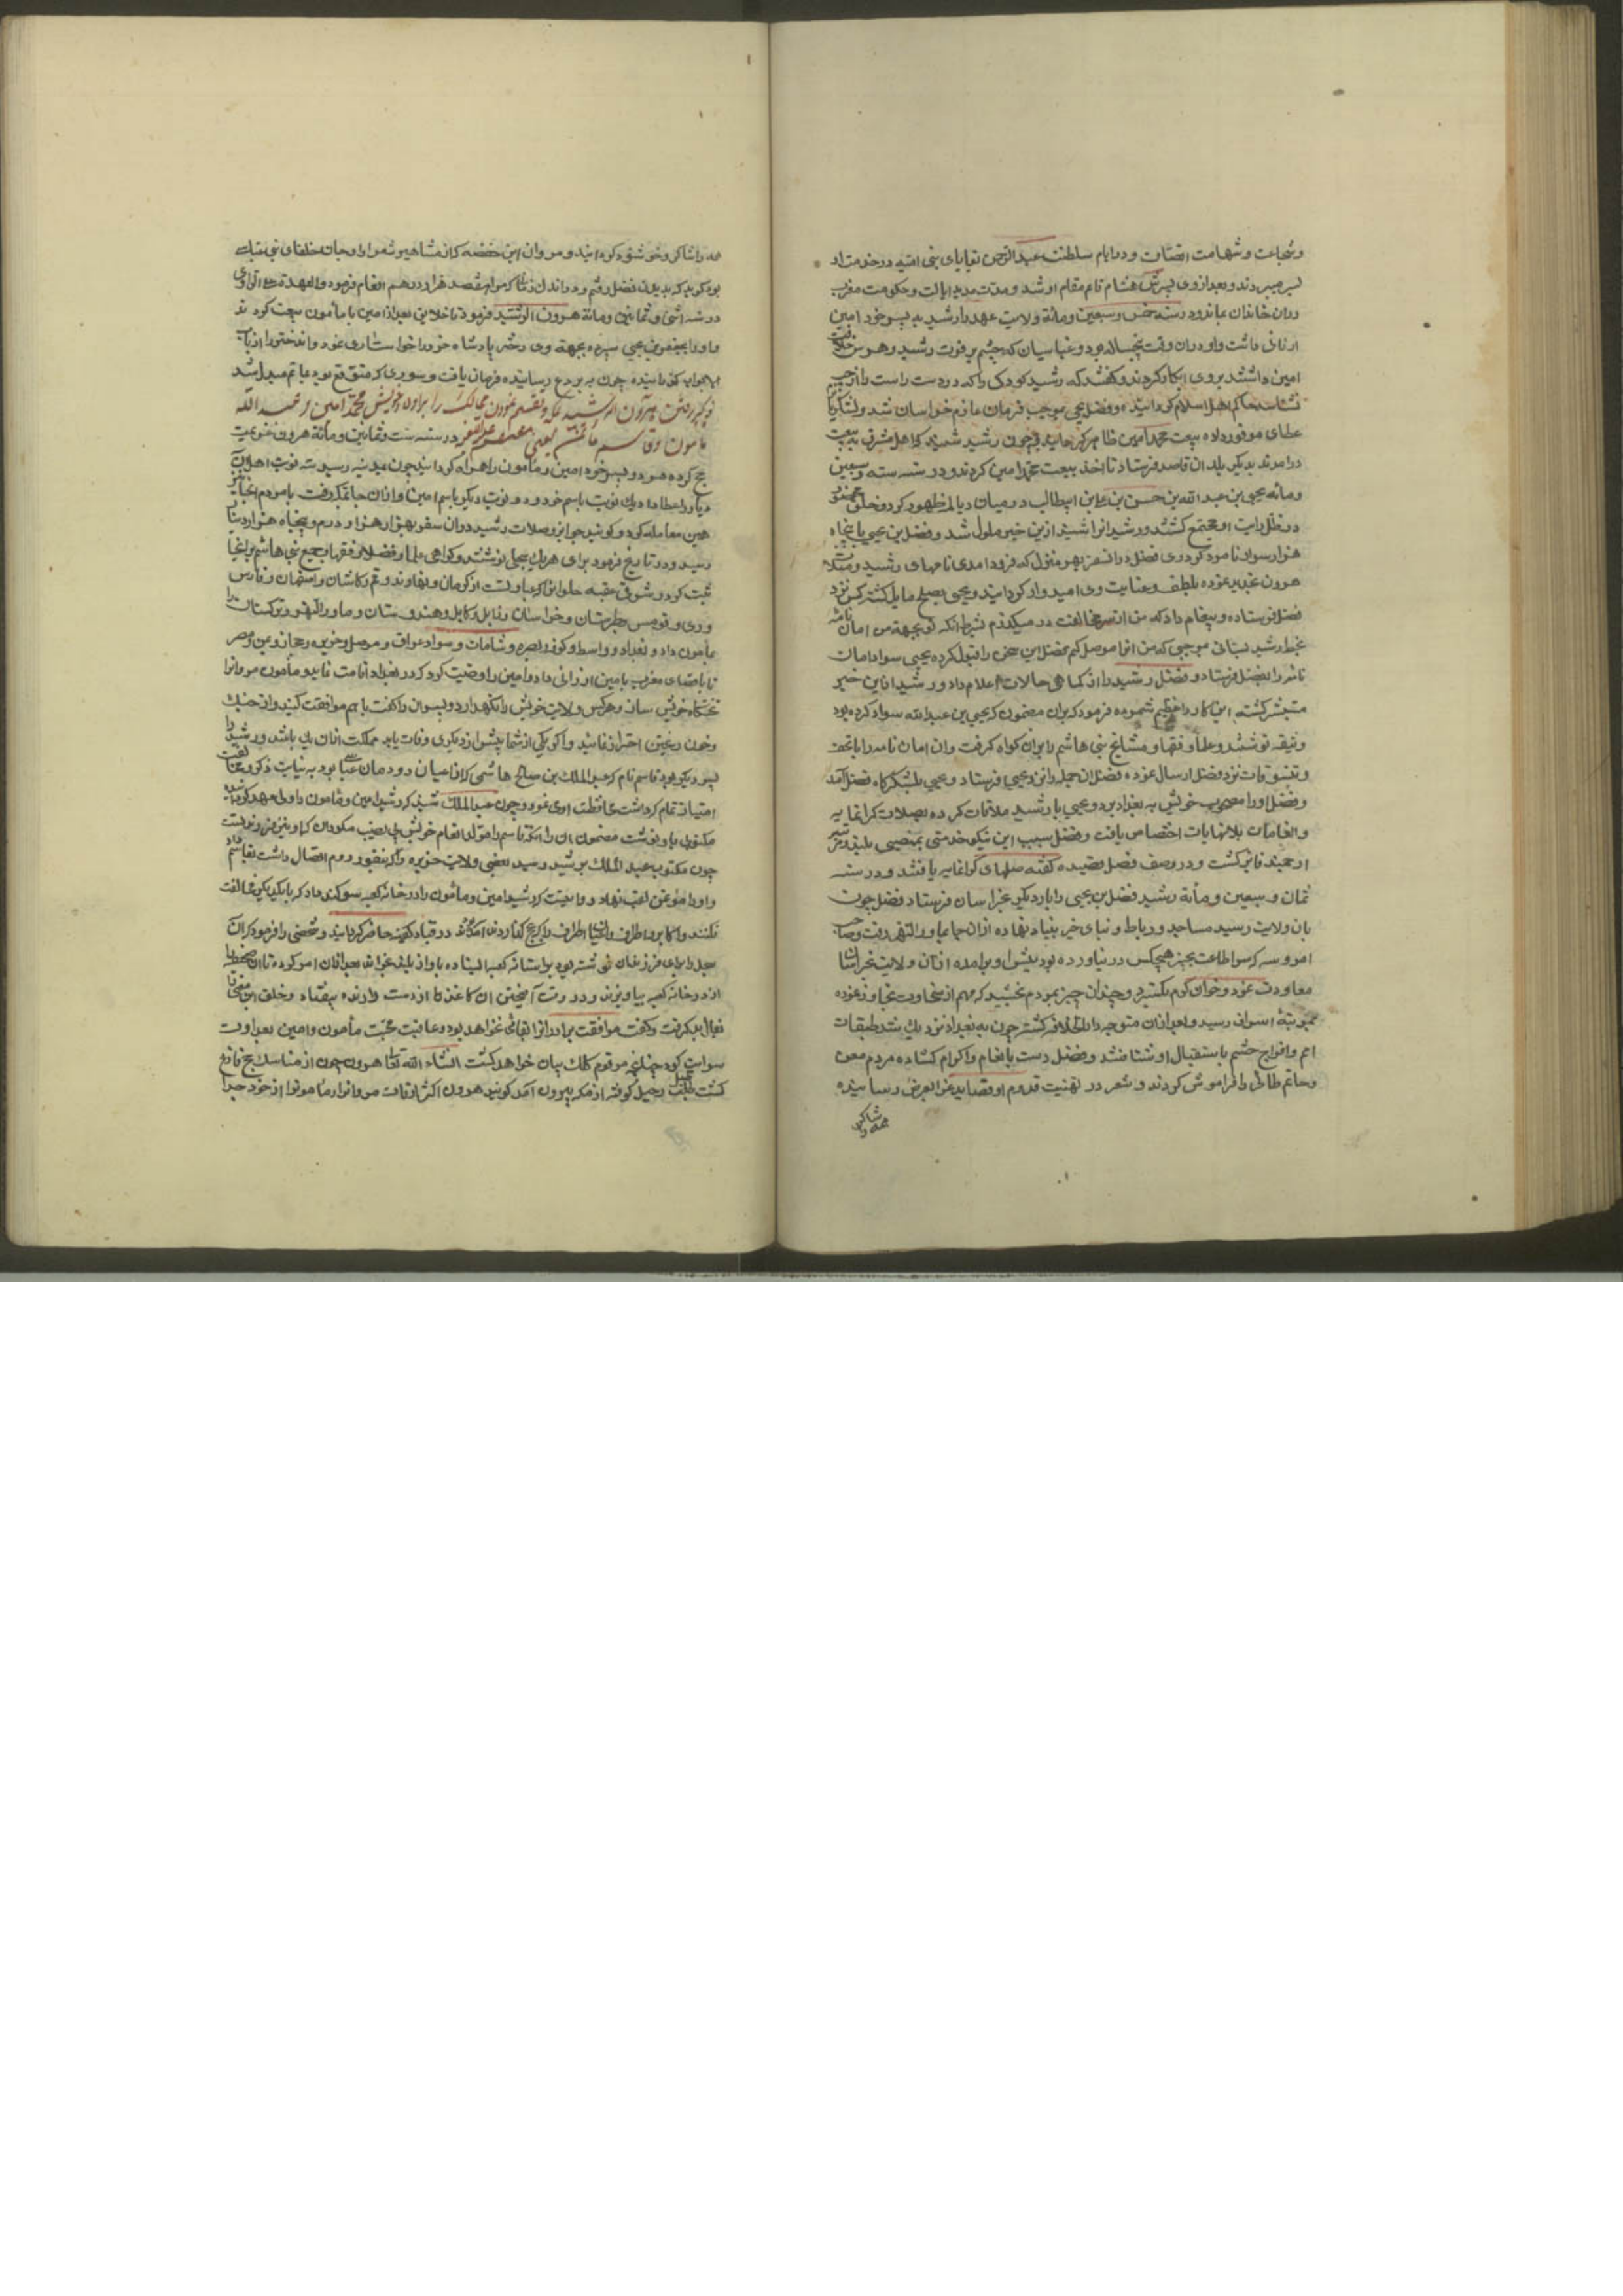 وشجاعت وشهامت اتصاف ودر ایام سلطنت عبد الرحمن بقایای بنی امیه در خدمت او
بسر میبردند وبعد از وی پسرش هشام قایم مقام او شد ومدت مدید ایالت وحکومت مغرب
در ان خاندان بماند ودر سنه خمس وسبعین ومائة ولایت عهد را رشید به پسر خود امین
ارزانی داشت واو در ان وقت پنجساله بود وعباسیان که چشم بر فوت رشید وهوس خلافت
امین داشتند بروی انکار کردند وگفتند که رشید کودکی را که دو دست راست را از چپ
نشناسد حاکم اهل اسلام گردانیده وفضل یحیی بموجب فرمان عازم خراسان شد ولشکریانرا
عطای موفور داده بیعت محمد امین ظاهر گردانید وچون رشید شنید که اهل مشرق به بیعت
در امدند بدیگر بلدان قاصد فرستاد تا اخذ بیعت محمد امین کردند ودر سنه سته وسبعین
ومائه یحیی بن عبد الله بن حسن بن علی بن ابیطالب در میان دیالمه ظهور کرد وخلق
در ظل رایت او مجتمع گشتند ورشید از این خبر ملول شد وفضل بن یحیی با پنجاه
هزار سوار نامزد کرد وی فضل در انسفر بهر منزل که فرود امدی نامهای رشید
هرون عذیر نموده بلطف وعنایت وی امیدوار گردانید ویحیی بصلح مایل گشته کس نزد
فضل فرستاده وپیغام داد که من از سر مخالفت در میگذرم بشرط انکه تو بجهة من امان نامه
بخط رشید بستانی موجبی که من انرا موصل کنم فضل این سخن را قبول کرده یحیی سواد امان
نامه را بفضل فرستاد وفضل رشید را از کماهی حالات اعلام داد ورشید از این خبر
مستبشر گشته این کار را عظیم شمرده فرمود که بران مضمون که یحیی بن عبد الله سواد کرده بود
وثیقه نوشتند وعلما وفقها ومشایخ بنی هاشم را بران گواه گرفت وان امان نامه را با تحف
وتنسوقات نزد فضل ارسال نموده فضل ان جمله را نزد یحیی فرستاد ویحیی بلشکرگاه فضل آمد
وفضل او را مصحوب خویش به بغداد برد ویحیی با رشید ملاقات کرده بصلات گرانمایه
وانعامات بلانهایات اختصاص یافت وفضل بسبب این نیکو خدمتی بمنصبی بلند ومرتبه
ارجمند فایز گشت ودر وصف فضل قصیده گفته صلهای گرانمایه یافتند ودر سنه
ثمان وسبعین ومأیة رشید فضل بن یحیی را بار دیگر بخراسان فرستاد فضل چون
بان ولایت رسید مساجد ورباط وبنای خیر بنیاد نهاده از ان جا بماورالنهر رفت وصاحب
امروسه که سر اطاعت بجز هیچکس در نیاورده بود پیش او برامده از ان ولایت بخراسان
معاودت نمود وخوان کرم بگسترد وچندان چیز بمردم بخشید که مهم از سخاوت بتجاوز نموده
بمرتبهٔ اسراف رسید وبعد از ان متوجه دار الخلافه گشته چون به بغداد نزدیک شد طبقات
امم وافواج حشم باستقبال او شتافتند وفضل دست بانعام واکرام گشاده مردم معن
وحاتم طائی را فراموش کردند وشعر در تهنیت قدوم او قصاید غرا بعرض رسانیده
همه را شاکر
همه را شاکر وخوشنود گردانید ومروان ابن حفصه که از مشاهیر شعرا ومداحان خلفای بنی عباس
بود گوید که بدیدن فضل رفتم ودر اندک زمان که مرا هفتصد هزار درهم انعام فرمود والعهدة علی الراوی
در سنه اثنی وثمانین ومائة هرون الرشید فرمود تا خلایق بعد از امین با مأمون بیعت کردند
واو را بجعفر بن یحیی سپرده بجهة وی دختر پادشاه خزر را خواستاری نمود وان دختر را از باب
الابواب گذرانیده چون به بردع رسانیده فرمان یافت وسوری که متوقع بود بماتم مبدل شد
ذکر رفتن هرون الرشید بمکه وتقسیم نمودن ممالک را براولاد خویش محمد امین وعبد الله
مامون وقاسم مؤتمن یعنی معتصم در سنه ست وثمانین ومائة هرون عزیمت
حج کرده هر دو پسر خود امین ومامون را همراه گردانید چون بمدینه رسید سه نوبت اهل آن
دیار را عطا داد یک نوبت باسم خود ودو نوبت دیگر باسم امین واز ان جا بمکه رفت با مردم انجا نیز
همین معامله کرد وگویند جوایز وصلات رشید در ان سفر بهزار هزار درم وپنجاه هزار دینار
رسید ودر تاریخ فرمود برای هر یک سجلی نوشتند وگواهی علما وفضلا وفقها وجمیع بنی هاشم بر انجا
ثبت کرد وشرقی عقبه حلوان که عبارتست از کرمان ونهاوند وقم وکاشان واصفهان وفارس
وری وقومس وطبرستان وخراسان وزابل وکابل وهندوستان وماورالنهر وترکستان را
بمأمون داد وبغداد وواسط وکوفه وبصره وشامات وسواد عراق وموصل وجزیره وحجاز ویمن ومصر
تا باقصای مغرب بامین ارزانی داد وامین را وصیت کرد که در بغداد اقامت نماید ومأمون مرو را
تختگاه خویش سازد وهر کس ولایت خویش را نگهدارد وپسران را گفت با هم موافقت کنید واز جنگ
وخون ریختن احتراز نمائید واگر یکی از شما پیشتر از دیگری وفات یابد مملکت از ان یک باشد ورشید را
پسر دیگر بود قاسم نام که عبد الملک بن صالح هاشمی که از اعیان دودمان عباسی بود
امتیاز تمام که داشت محافظت اوی نمود وچون عبد الملک شنید که رشید امین ومامون را ولی عهد گردانیده
مکتوبی باو نوشت مضمون ان را انکه قاسم را هم از انعام خویش بی نصیب مگردان که او نیز فرزند تست
چون مکتوب عبد الملک برشید رسید بعضی ولایت جزیره را که بثغور روم اتصال داشت بقاسم داد
واو را مؤتمن لقب نهاد وروایت کرد رشید امین ومأمون را در خانه کعبه سوگند داد که با یکدیگر مخالفت
نکنند واکابر واطراف واعیان اطراف را که بحج گذاردن آمده بودند در قباله حاضر گردانید وشخصی را فرمود که ان
سجل را برای فرزندان نوشته بود بر استانه کعبه ایستاده باواز بلند بخواند بعد از ان امر کرد تا ان
از در خانه کعبه بیاویزند ودر وقت آویختن ان کاغذها از دست دارنده بیفتاد وخلق این معنی را
بفال بد گرفت وگفت موافقت برادران را بقائی نخواهد بود وعاقبت محبت مأمون وامین بعداوت
سرایت کرد چنانچه مرقوم کلک بیان خواهد گشت انشاء الله تعالی هرون چون از مناسک حج فارغ
گشت طبل رحیل کوفته از مکه بیرون آمد گویند هرون اکثر اوقات مرو را ومامونرا از خود جدا